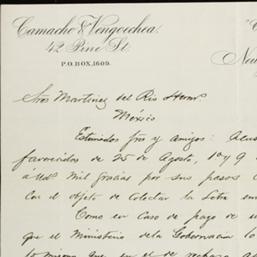 Camacho & Vengoechea.
42 Pine St.
P.O. BOX, 1609.
Sres Martinez del Rio Hernos
México
Estimados Sres y amigos: Acus
favorecidos de 25 de Agosto, 1º y 9
á Uds. mil gracias por sus pasos
Con el objeto de Colectar la Letra
Como en Caso de pago de
que el Ministerio de la Gobernación lo
lo mismo que en el de